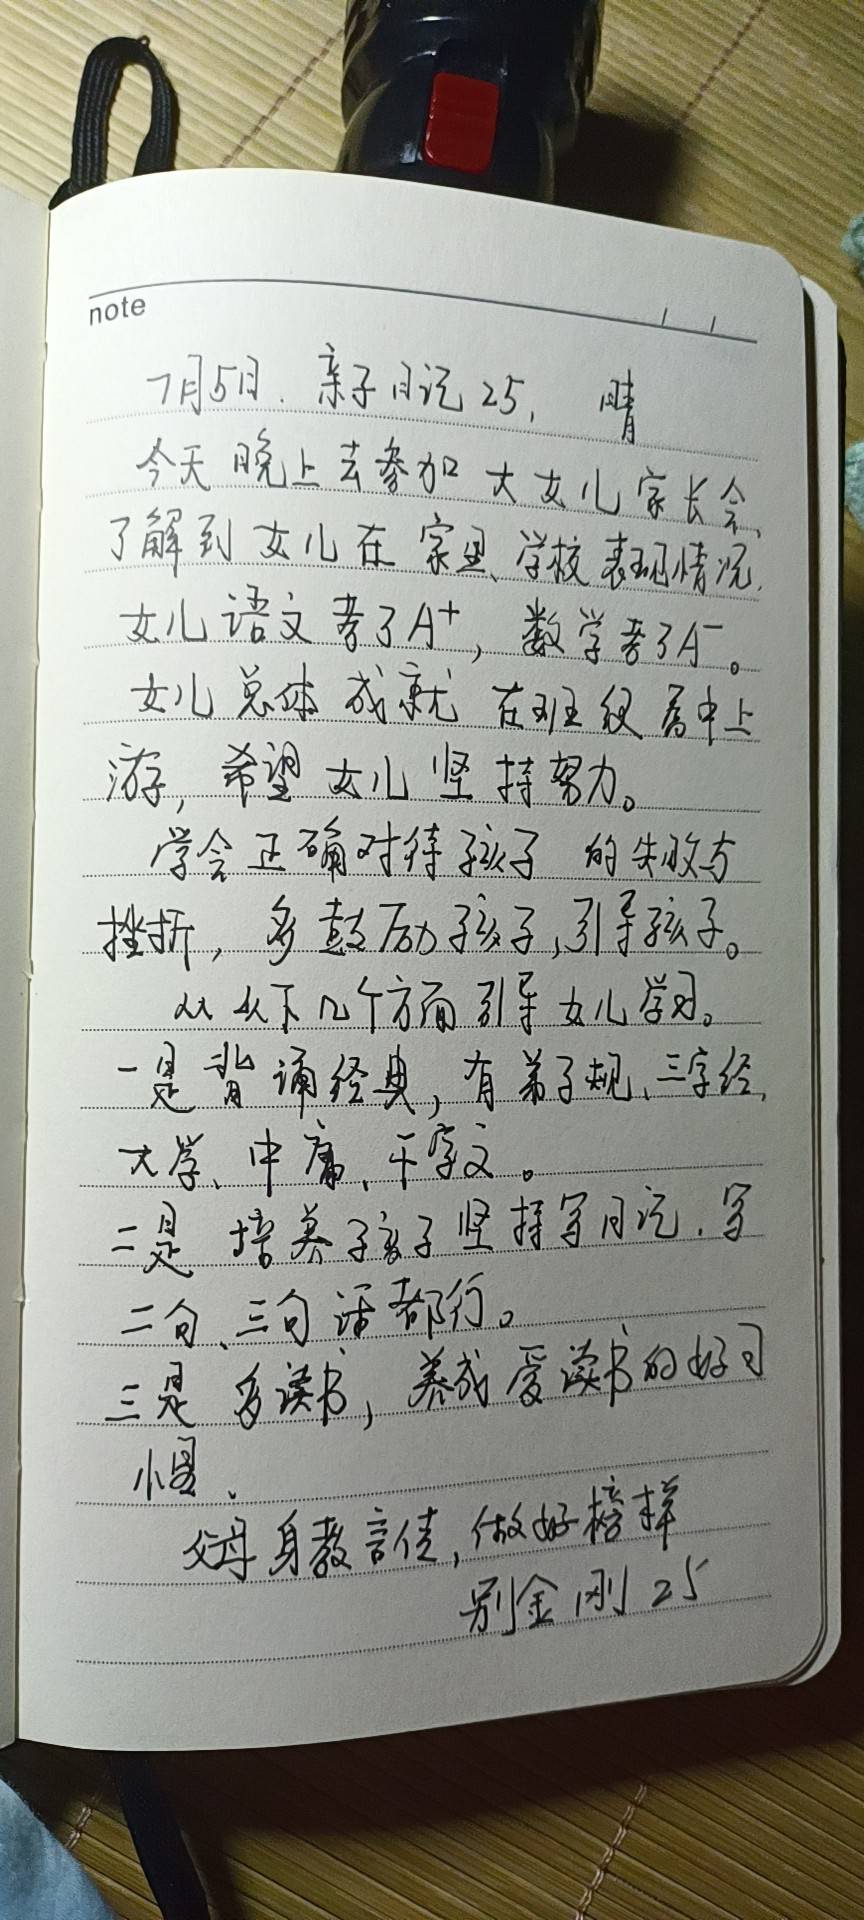 note
7月5日. 亲子日记25, 晴
今天晚上去参加大女儿家长会,
了解到女儿在家里、学校表现情况.
女儿语文考了A+, 数学考了A-。
女儿总体成就在班级属中上
游, 希望女儿坚持努力。
学会正确对待孩子的失败与
挫折, 多鼓励孩子, 引导孩子。
从以下几个方面引导女儿学习。
一是背诵经典, 有弟子规、三字经,
大学、中庸、千字文。
二是培养孩子坚持写日记. 写
二句、三句话都行。
三是多读书, 养成爱读书的好习
惯、
父母身教言传, 做好榜样
别金刚 25